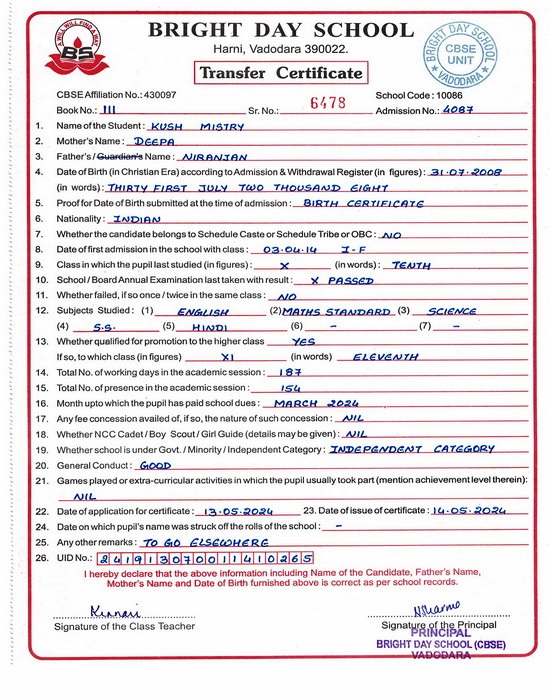 A WILL WILL FIND A WAY
BS
BRIGHT DAY SCHOOL
Harni, Vadodara 390022.
Transfer Certificate
BRIGHT DAY SCHOOL
CBSE
UNIT
★ VADODARA ★
CBSE Affiliation No.: 430097 School Code : 10086
Book No.: III Sr. No.: 6478 Admission No.: 4087
1. Name of the Student : KUSH MISTRY
2. Mother's Name : DEEPA
3. Father's / Guardian's Name : NIRANJAN
4. Date of Birth (in Christian Era) according to Admission & Withdrawal Register (in figures) : 31.07.2008
(in words) : THIRTY FIRST JULY TWO THOUSAND EIGHT
5. Proof for Date of Birth submitted at the time of admission : BIRTH CERTIFICATE
6. Nationality : INDIAN
7. Whether the candidate belongs to Schedule Caste or Schedule Tribe or OBC : NO
8. Date of first admission in the school with class : 03.04.14 I-F
9. Class in which the pupil last studied (in figures) : X (in words) : TENTH
10. School / Board Annual Examination last taken with result : X PASSED
11. Whether failed, if so once / twice in the same class : NO
12. Subjects Studied : (1) ENGLISH (2) MATHS STANDARD (3) SCIENCE
(4) S.S. (5) HINDI (6) - (7) -
13. Whether qualified for promotion to the higher class YES
If so, to which class (in figures) XI (in words) ELEVENTH
14. Total No. of working days in the academic session : 187
15. Total No. of presence in the academic session : 154
16. Month upto which the pupil has paid school dues : MARCH 2024
17. Any fee concession availed of, if so, the nature of such concession : NIL
18. Whether NCC Cadet / Boy Scout / Girl Guide (details may be given) : NIL
19. Whether school is under Govt. / Minority / Independent Category : INDEPENDENT CATEGORY
20. General Conduct : GOOD
21. Games played or extra-curricular activities in which the pupil usually took part (mention achievement level therein):
NIL
22. Date of application for certificate : 13.05.2024 23. Date of issue of certificate : 14.05.2024
24. Date on which pupil's name was struck off the rolls of the school : -
25. Any other remarks : TO GO ELSEWHERE
26. UID No.: 241913070011410265
I hereby declare that the above information including Name of the Candidate, Father's Name,
Mother's Name and Date of Birth furnished above is correct as per school records.
Kumari
Signature of the Class Teacher Signature of the Principal
PRINCIPAL
BRIGHT DAY SCHOOL (CBSE)
VADODARA